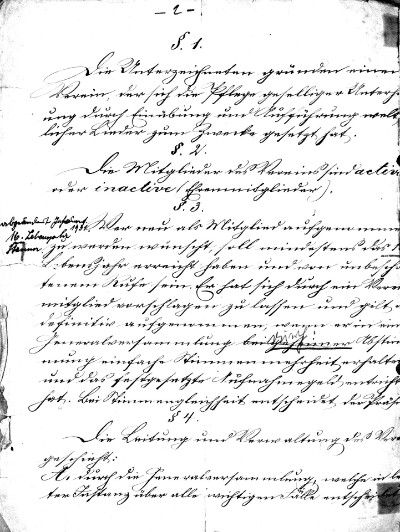 — 2 —
§. 1.
Die Unterzeichneten gründen einen
Verein, der sich die Pflege geselliger Unterh
ung durch Einübung und Aufführung welt
licher Lieder zum Zwecke gesetzt hat.
§. 2.
Die Mitglieder des Vereins sind active
oder inactive (Ehrenmitglieder).
§. 3.
abgeändert
16. Lebensjahr
Wer neu als Mitglied aufgenommen
zu werden wünscht, soll mindestens das
bensjahr erreicht haben und von unbescho
tenem Rufe sein. Er hat sich durch ein Verei
mitglied vorschlagen zu lassen und gilt
definitiv aufgenommen, wenn er in ein
Generalversammlung bei Abstim
mung einfache Stimmenmehrheit erhalten
und das festgesetzte Aufnahmegeld entricht
hat. Bei Stimmengleichheit entscheidet der Präs
§ 4.
Die Leitung und Verwaltung des Ver
geschieht:
A, durch die Generalversammlung, welche in le
ter Instanz über alle wichtigen Fälle entscheidet